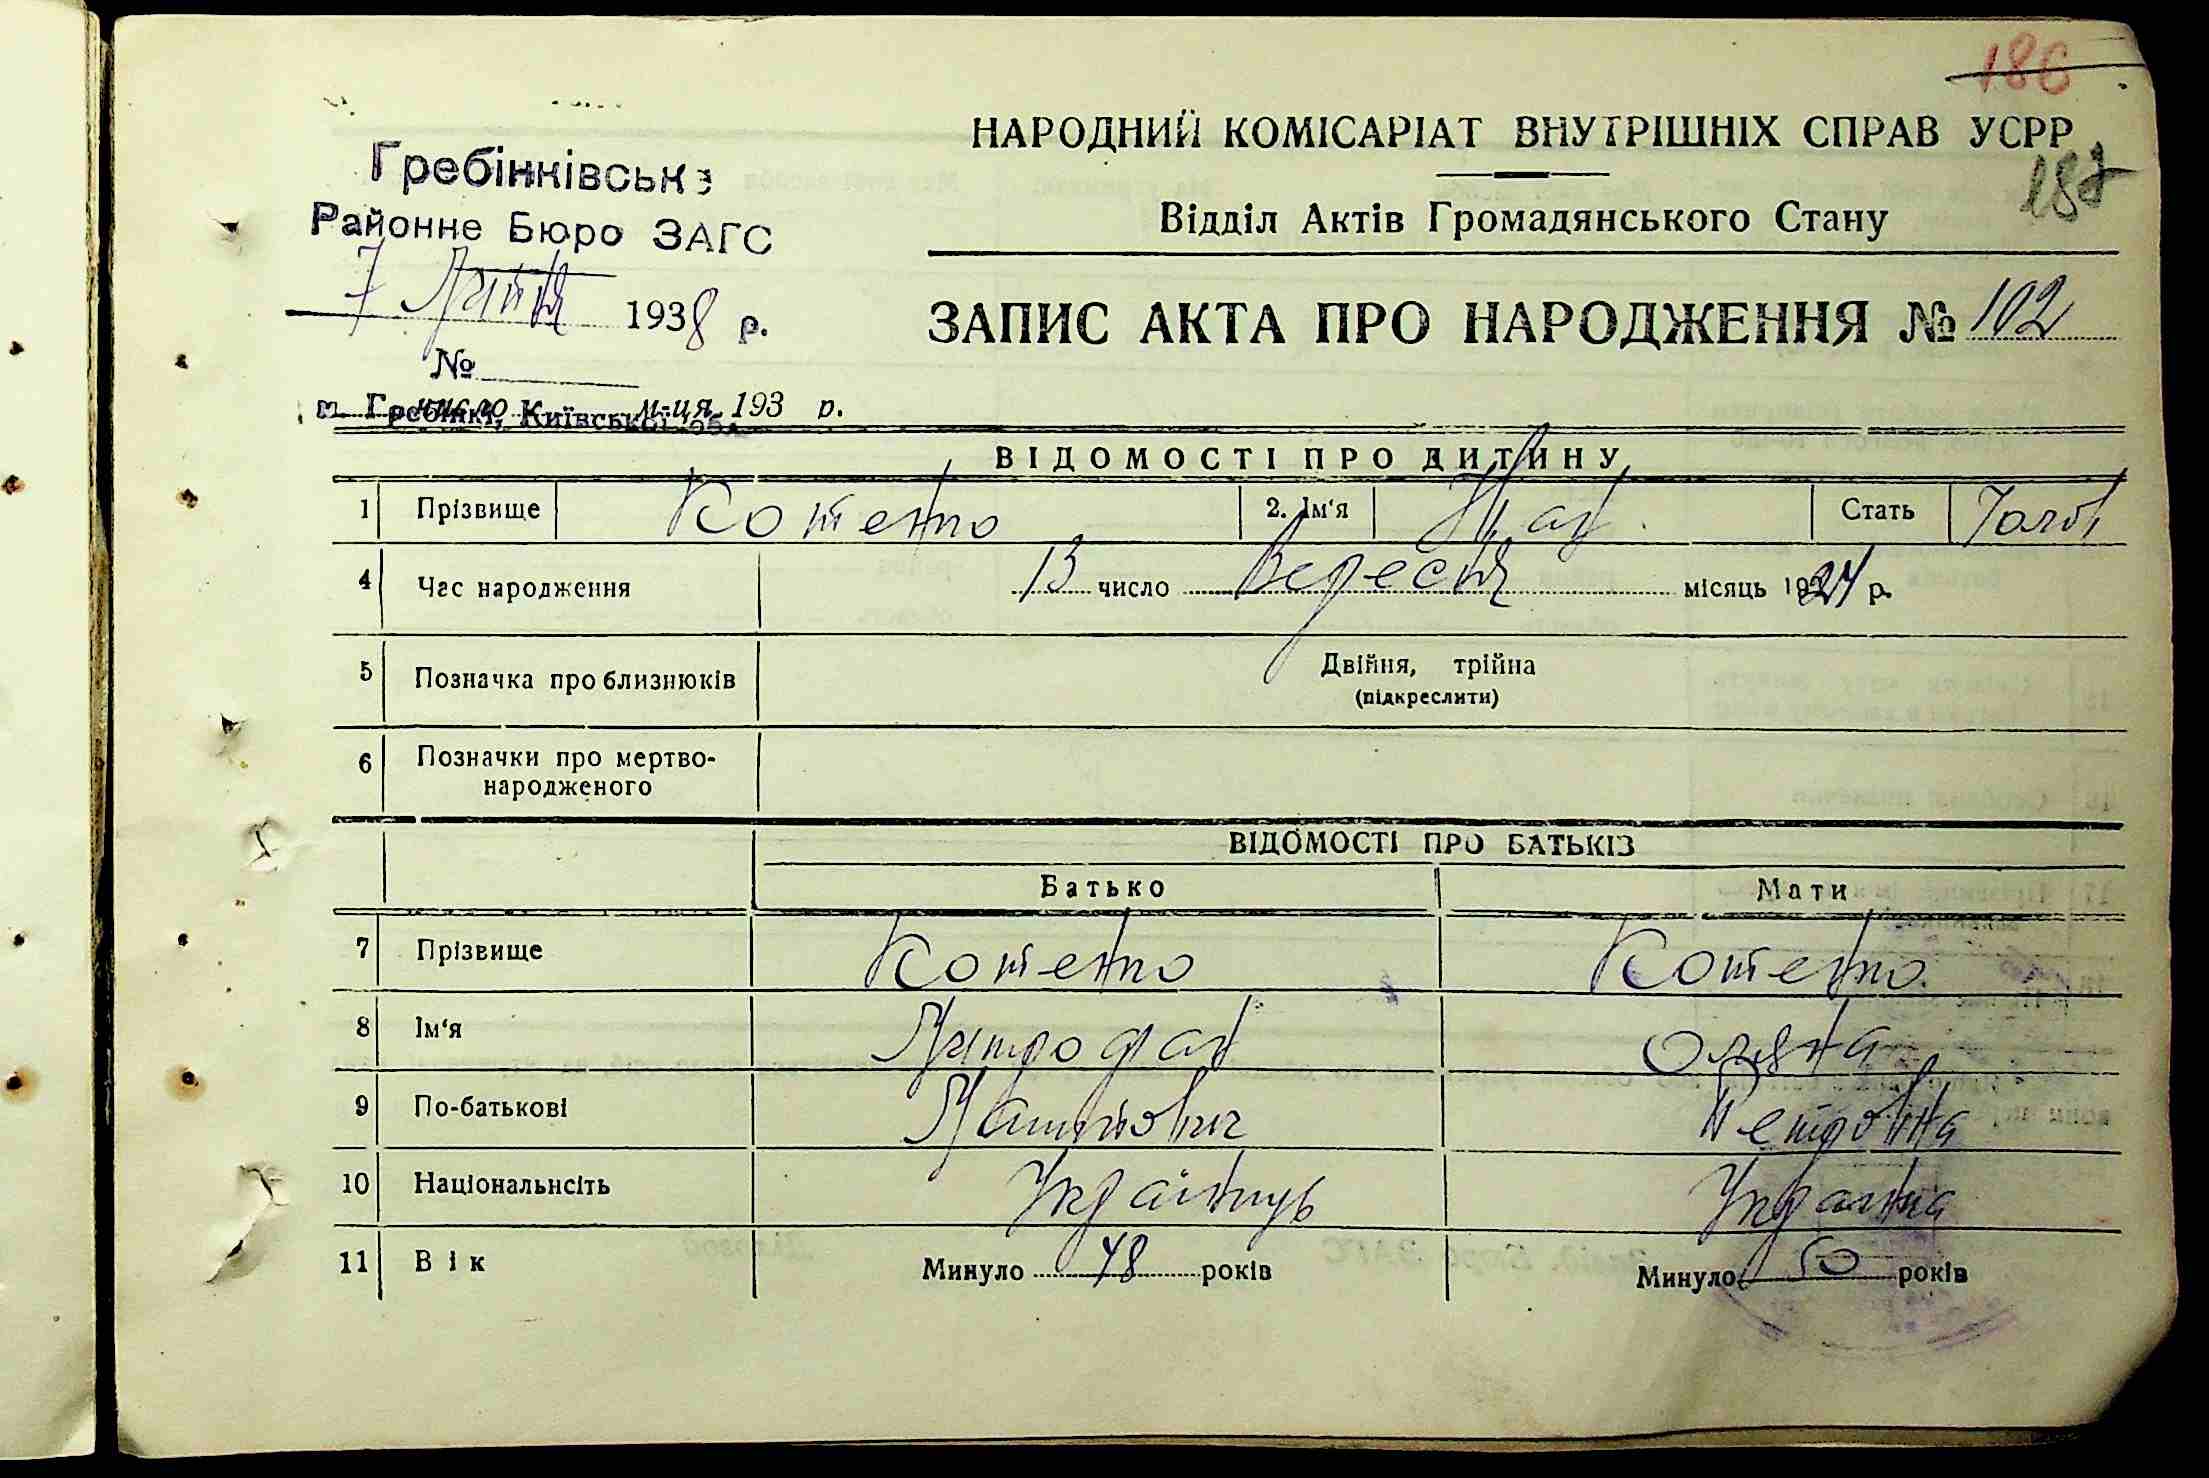 186
НАРОДНИЙ КОМІСАРІАТ ВНУТРІШНІХ СПРАВ УСРР
187
Гребінківськ
Районне Бюро ЗАГС
Відділ Актів Громадянського Стану
7 1938 р.
ЗАПИС АКТА ПРО НАРОДЖЕННЯ № 102
№
м. Гребінки, Київської обл.
число м-ця 193 р.
ВІДОМОСТІ ПРО ДИТИНУ
1 Прізвище Котенко 2. Ім'я Іван Стать Чолов
4 Час народження 13 число Вересня місяць 1924 р.
5 Позначка про близнюків Двійня, трійна
(підкреслити)
6 Позначки про мертво-
народженого
ВІДОМОСТІ ПРО БАТЬКІВ
Батько Мати
7 Прізвище Котенко Котенко
8 Ім'я Митрофан Оляна
9 По-батькові Петровна
10 Національнсіть Українець Українка
11 Вік Минуло 48 років Минуло 50 років